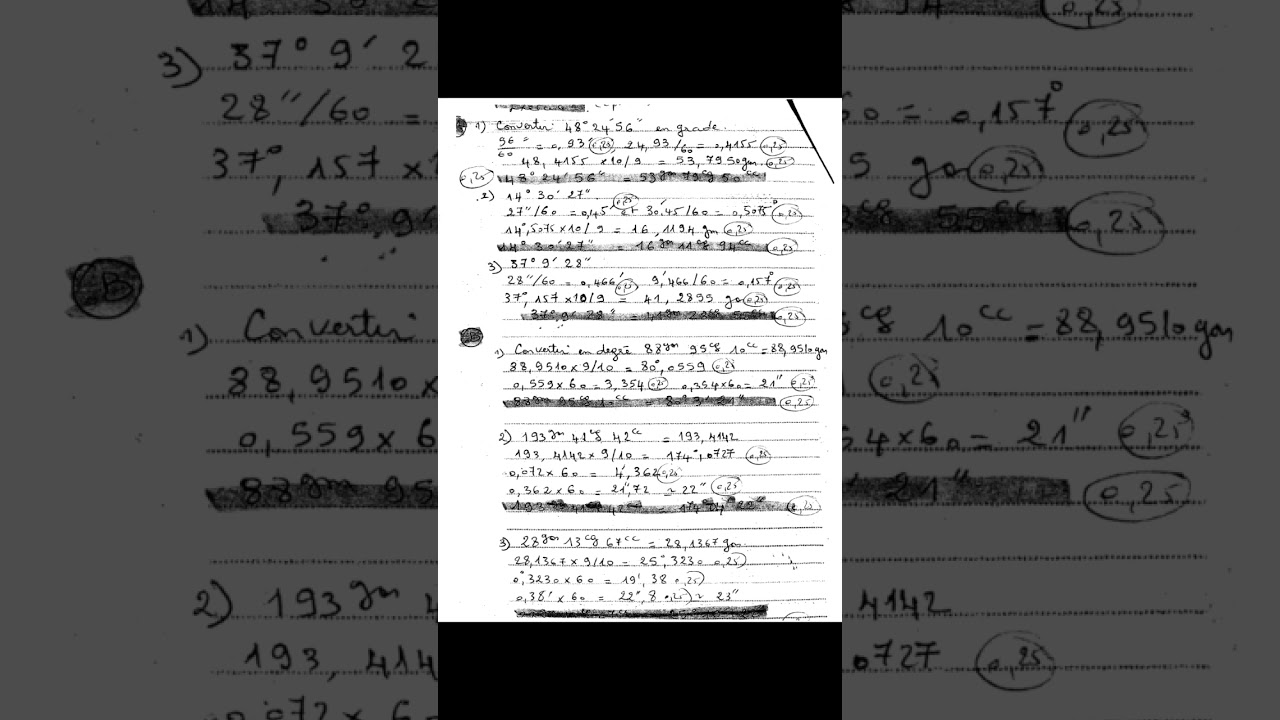 1) Convertir 48° 24' 56" en grade.
56"/60 = 0,93' 0,25 24,93/60 = 0,4155 0,25
48,4155 x10/9 = 53,7950 gon 0,25
0,25 48° 24' 56" = 53gon 79cg 50cc
2) 14° 30' 27"
27"/60 = 0,45' 0,25 et 30,45/60 = 0,5075° 0,25
14°,5075 x 10/9 = 16,1194 gon 0,25
14° 30' 27" = 16gon 11cg 94cc 0,25
3) 37° 9' 28"
28"/60 = 0,466' 0,25 9,466/60 = 0,157° 0,25
37°,157 x10/9 = 41,2855 gon 0,25
37° 9' 28" = 0,25
1) Convertir en degré 88gon 95cg 10cc = 88,9510 gon
88,9510 x 9/10 = 80°,0559 0,25
0,559 x 60 = 3,354 0,25 0,354x60 = 21" 0,25
88gon 95cg 10cc = 80° 3' 21" 0,25
2) 193gon 41cg 42cc = 193,4142
193,4142 x 9/10 = 174°,0727 0,25
0,072 x 60 = 4',362 0,25
0,362 x 60 = 21",72 ≈ 22" 0,25
193 41 42 = 174 04' 22" 0,25
3) 28gon 13cg 67cc = 28,1367 gon
28,1367 x 9/10 = 25°,3230 0,25
0°,3230 x 60 = 19',38 0,25
0,38' x 60 = 22",8 0,25 ≈ 23"